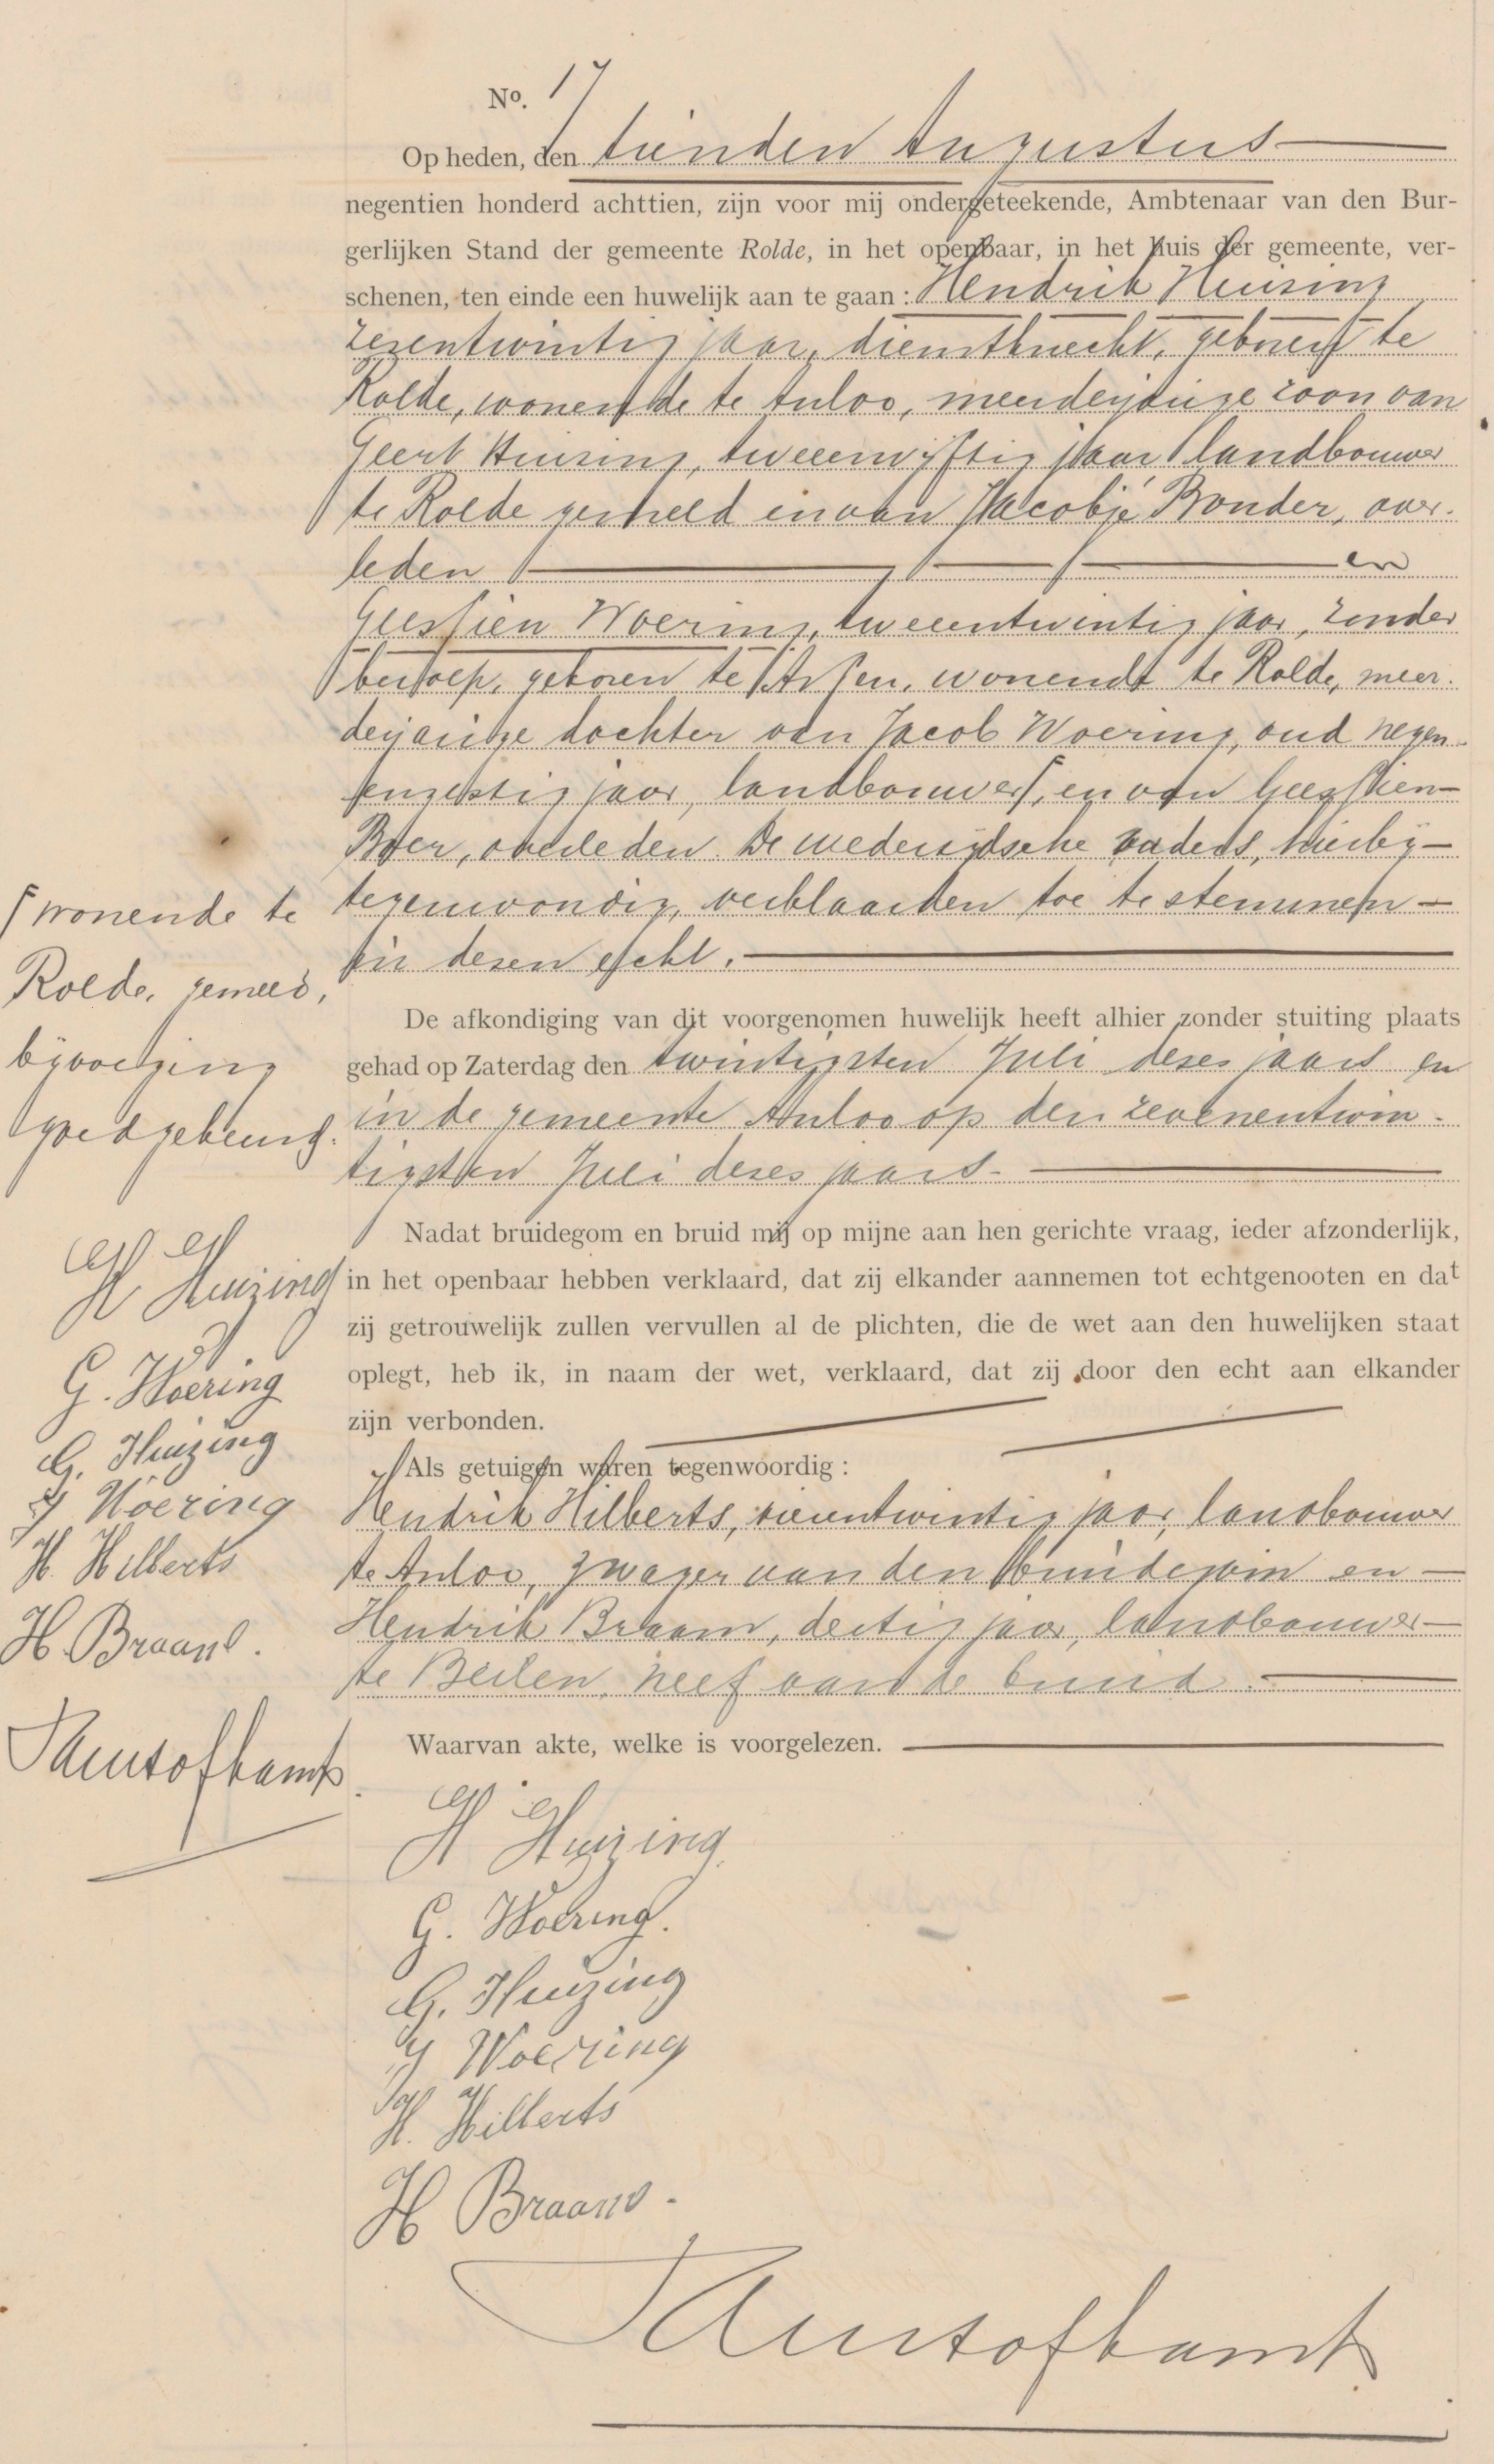 No. 17
Op heden, den tienden Augustus
negentien honderd achttien, zijn voor mij ondergeteekende, Ambtenaar van den Bur-
gerlijken Stand der gemeente Rolde, in het openbaar, in het huis der gemeente, ver-
schenen, ten einde een huwelijk aan te gaan: Hendrik Huizing
zesentwintig jaar, dienstknecht, geboren te
Rolde, wonende te Anloo, meerderjarige zoon van
Geert Huizing, tweeenvijftig jaar landbouwer
te Rolde gemeld en van Jacobje Bonder, over-
leden en
Geessien Woering, tweeentwintig jaar, zonder
beroep, geboren te Assen, wonende te Rolde, meer-
derjarige dochter van Jacob Woering, oud negen-
enzestig jaar, landbouwer ⌈, en van Geessien
Boer, overleden. De wederzijdsche vaders, hierbij
tegenwoordig, verklaarden toe te stemmen
in dezen echt.
De afkondiging van dit voorgenomen huwelijk heeft alhier zonder stuiting plaats
gehad op Zaterdag den twintigsten Juli dezes jaars en
in de gemeente Anloo op den zevenentwin-
tigsten Juli dezes jaars.
Nadat bruidegom en bruid mij op mijne aan hen gerichte vraag, ieder afzonderlijk,
in het openbaar hebben verklaard, dat zij elkander aannemen tot echtgenooten en dat
zij getrouwelijk zullen vervullen al de plichten, die de wet aan den huwelijken staat
oplegt, heb ik, in naam der wet, verklaard, dat zij door den echt aan elkander
zijn verbonden.
Als getuigen waren tegenwoordig:
Hendrik Hilberts, jaar, landbouwer
te Anloo, zwager van den bruidegom en
Hendrik Braam, dertig jaar, landbouwer
te Beilen, neef van de bruid.
Waarvan akte, welke is voorgelezen.
H Huizing
G. Woering.
G. Huizing
J Woering
H. Hilberts
H Braams.
⌈ wonende te
Rolde, gemeld,
bijvoeging
goedgekeurd.
H Huizing
G. Woering
G. Huizing
J Woering
H. Hilberts
H. Braams.